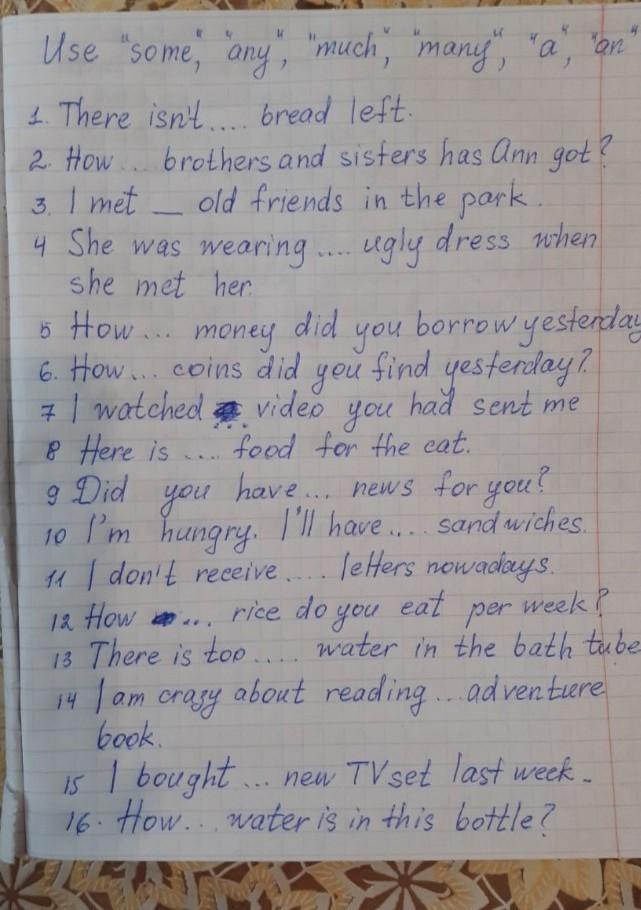 Use "some", "any", "much", "many", "a", "an"
1. There isn't.... bread left.
2. How... brothers and sisters has Ann got?
3. I met __ old friends in the park.
4 She was wearing.... ugly dress when
she met her.
5 How... money did you borrow yesterday
6. How... coins did you find yesterday?
7 I watched ... video you had sent me
8 Here is .... food for the cat.
9 Did you have... news for you?
10 I'm hungry. I'll have.... sandwiches.
11 I don't receive.... letters nowadays.
12 How ... rice do you eat per week?
13 There is too.... water in the bath tube
14 I am crazy about reading...adventure
book.
15 I bought ... new TV set last week.
16. How... water is in this bottle?